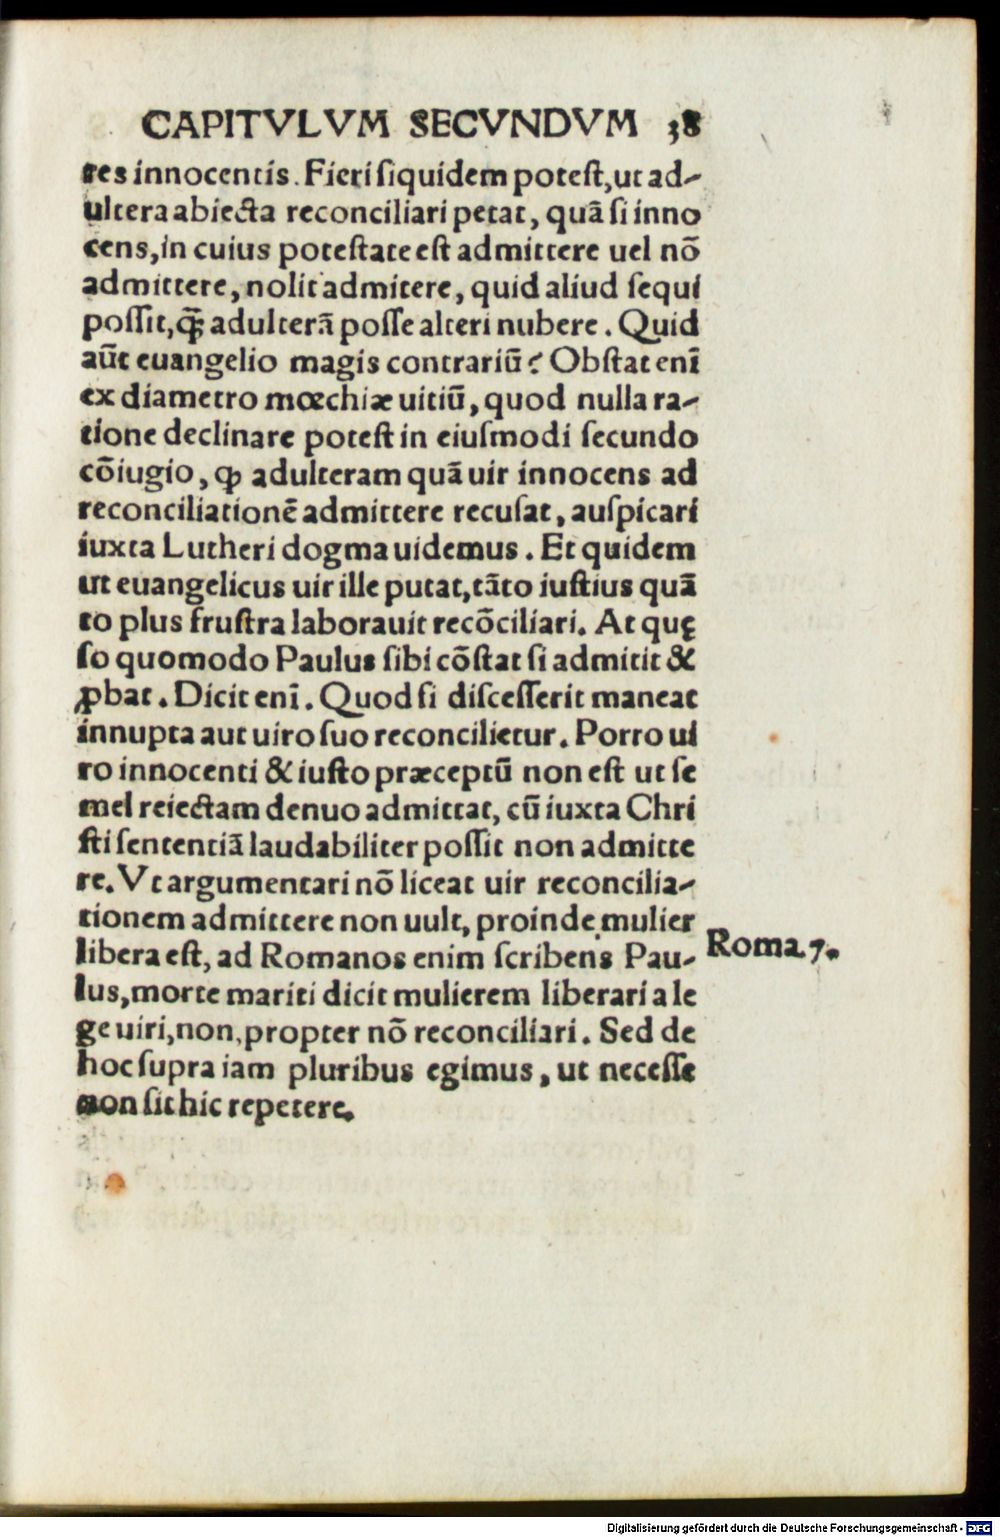 CAPITVLVM SECVNDVM 38
res innocentis. Fieri siquidem potest, ut ad-
ultera abiecta reconciliari petat, quã si inno
cens, in cuius potestate est admittere uel nõ
admittere, nolit admitere, quid aliud sequi
possit, q̃ adulterã posse alteri nubere. Quid
aũt euangelio magis contrariũ? Obstat enĩ
ex diametro mœchiæ uitiũ, quod nulla ra-
tione declinare potest in eiusmodi secundo
cõiugio, ꝙ adulteram quã uir innocens ad
reconciliationẽ admittere recusat, auspicari
iuxta Lutheri dogma uidemus. Et quidem
ut euangelicus uir ille putat, tãto iustius quã
to plus frustra laborauit recõciliari. At quę
so quomodo Paulus sibi cõstat si admitit &
ꝓbat. Dicit enĩ. Quod si discesserit maneat
innupta aut uiro suo reconcilietur. Porro ui
ro innocenti & iusto præceptũ non est ut se
mel reiectam denuo admittat, cũ iuxta Chri
sti sententiã laudabiliter possit non admitte
re. Vt argumentari nõ liceat uir reconcilia-
tionem admittere non uult, proinde mulier
libera est, ad Romanos enim scribens Pau-
lus, morte mariti dicit mulierem liberari a le
ge uiri, non, propter nõ reconciliari. Sed de
hoc supra iam pluribus egimus, ut necesse
non sit hic repetere.
Roma. 7.
Digitalisierung gefördert durch die Deutsche Forschungsgemeinschaft - DFG